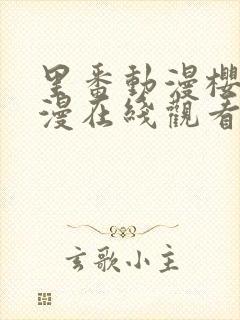 里番動漫櫻
漫在綫觀看
玄歌小主